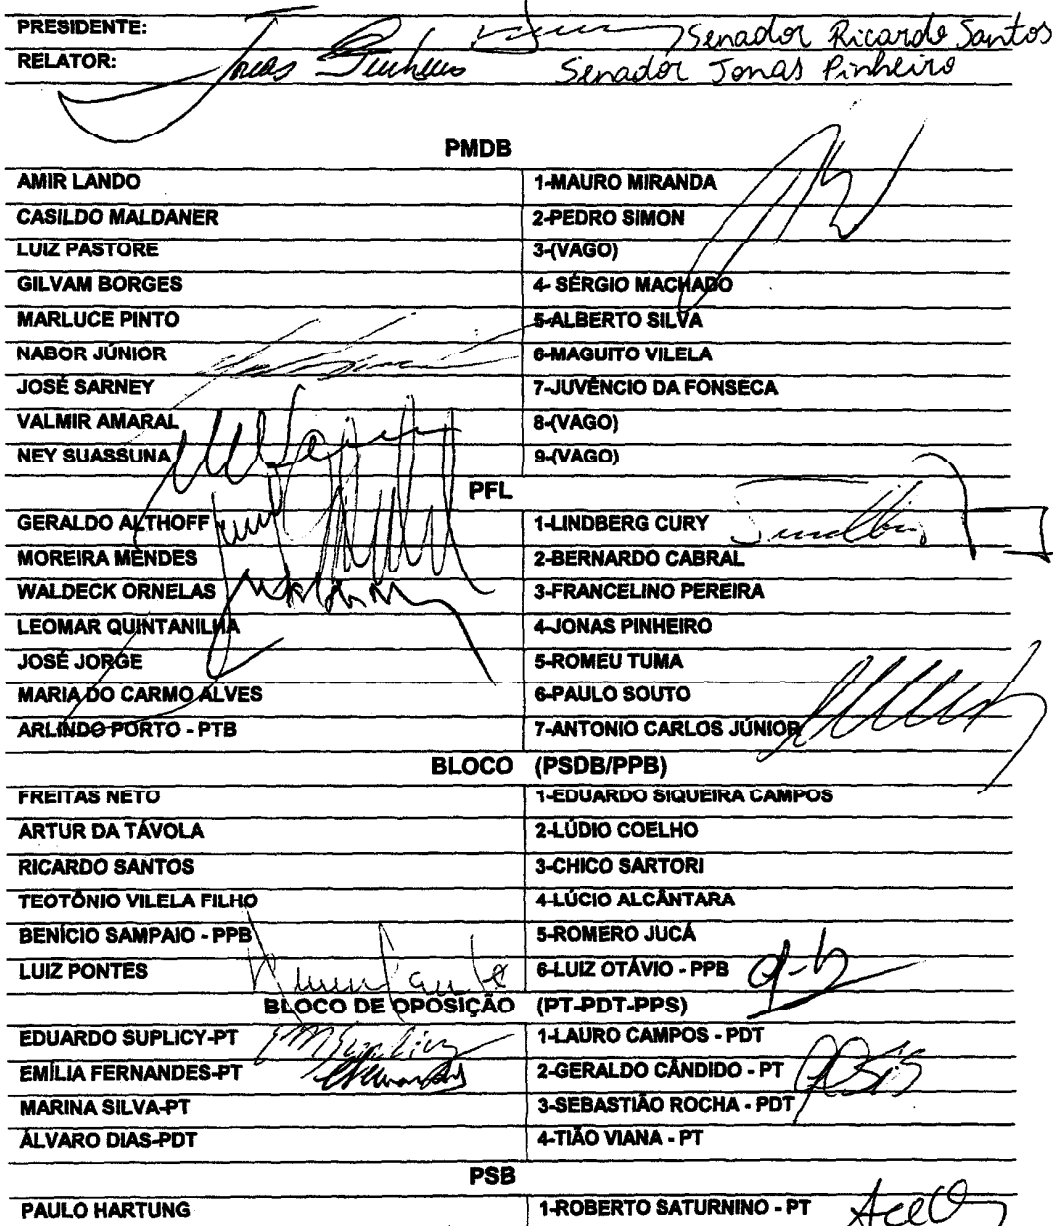 PRESIDENTE: Senador Ricardo Santos
RELATOR: Jonas Pinheiro Senador Jonas Pinheiro
PMDB
AMIR LANDO 1-MAURO MIRANDA
CASILDO MALDANER 2-PEDRO SIMON
LUIZ PASTORE 3-(VAGO)
GILVAM BORGES 4- SÉRGIO MACHADO
MARLUCE PINTO 5-ALBERTO SILVA
NABOR JÚNIOR 6-MAGUITO VILELA
JOSÉ SARNEY 7-JUVÊNCIO DA FONSECA
VALMIR AMARAL 8-(VAGO)
NEY SUASSUNA 9-(VAGO)
PFL
GERALDO ALTHOFF 1-LINDBERG CURY
MOREIRA MENDES 2-BERNARDO CABRAL
WALDECK ORNELAS 3-FRANCELINO PEREIRA
LEOMAR QUINTANILHA 4-JONAS PINHEIRO
JOSÉ JORGE 5-ROMEU TUMA
MARIA DO CARMO ALVES 6-PAULO SOUTO
ARLINDO PORTO - PTB 7-ANTONIO CARLOS JÚNIOR
BLOCO (PSDB/PPB)
FREITAS NETO 1-EDUARDO SIQUEIRA CAMPOS
ARTUR DA TÁVOLA 2-LÚDIO COELHO
RICARDO SANTOS 3-CHICO SARTORI
TEOTÔNIO VILELA FILHO 4-LÚCIO ALCÂNTARA
BENÍCIO SAMPAIO - PPB 5-ROMERO JUCÁ
LUIZ PONTES 6-LUIZ OTÁVIO - PPB
BLOCO DE OPOSIÇÃO (PT-PDT-PPS)
EDUARDO SUPLICY-PT 1-LAURO CAMPOS - PDT
EMÍLIA FERNANDES-PT 2-GERALDO CÂNDIDO - PT
MARINA SILVA-PT 3-SEBASTIÃO ROCHA - PDT
ÁLVARO DIAS-PDT 4-TIÃO VIANA - PT
PSB
PAULO HARTUNG 1-ROBERTO SATURNINO - PT